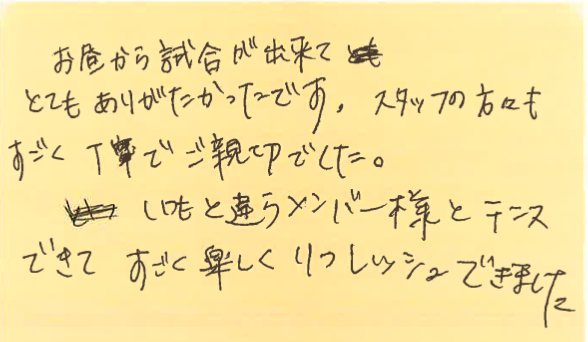 お昼から試合が出来て
とてもありがたかったです。スタッフの方々も
すごく丁寧でご親切でした。
いつもと違うメンバー様とテニス
できて すごく楽しくリフレッシュできました